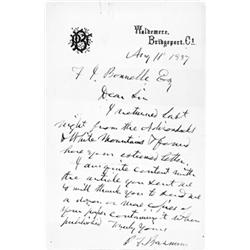 Waldemere,
Bridgeport, Ct.
Aug 11 1887
F. J. Bonnelle Esq
Dear Sir
I returned last
night from the Adirondacks
& White Mountains & found
here your esteemed letter.
I am quite content with
the article you sent me
& will thank you to send me
a dozen or more copies of
your paper containing it when
published Truly yours
P. T. Barnum